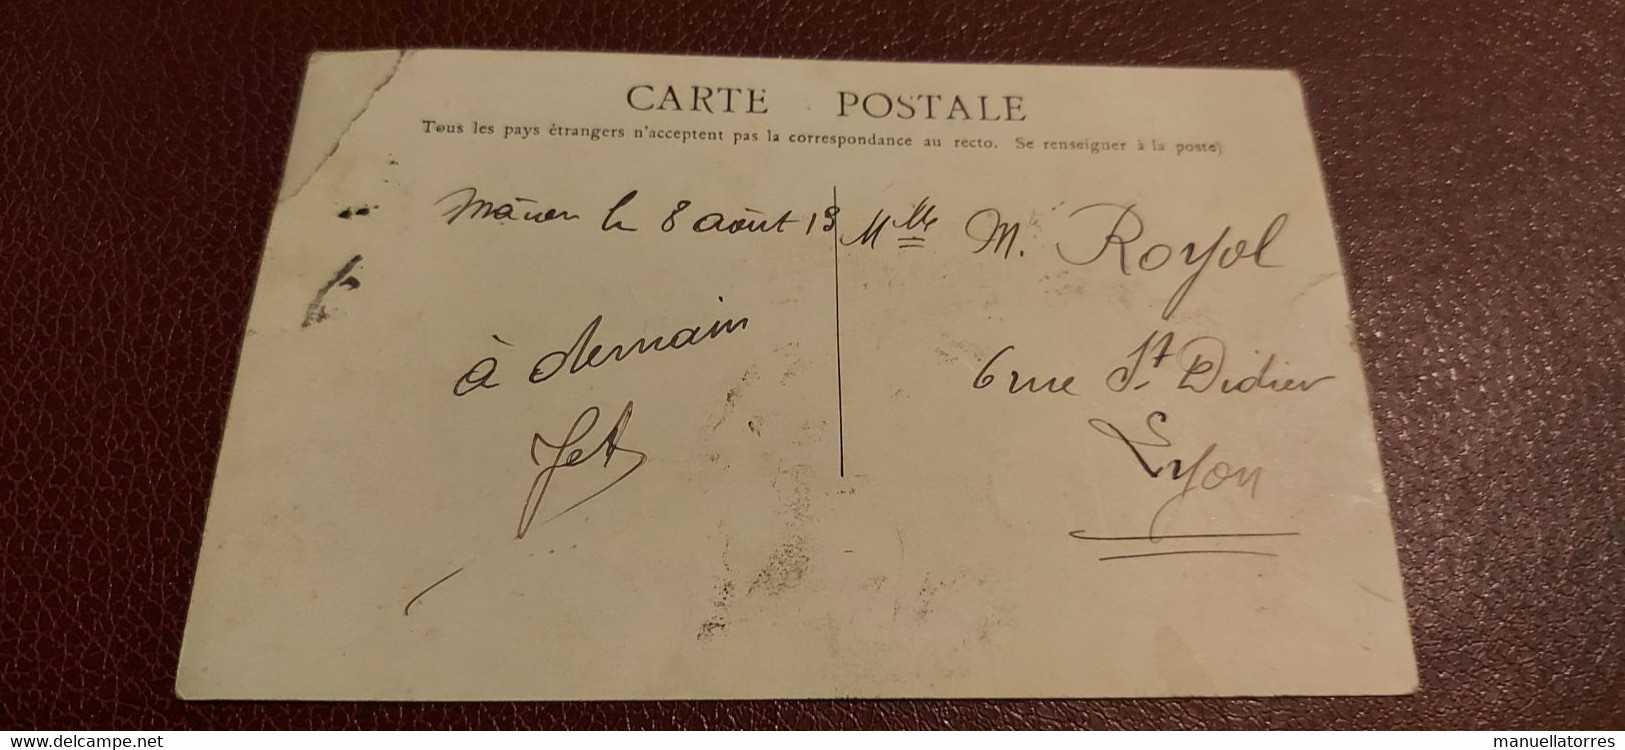 CARTE POSTALE
Tous les pays étrangers n'acceptent pas la correspondance au recto. Se renseigner à la poste)
le 8 août 13
à demain
Mlle M. Royol
6 rue St Didier
Lyon
www.delcampe.net
manuellatorres